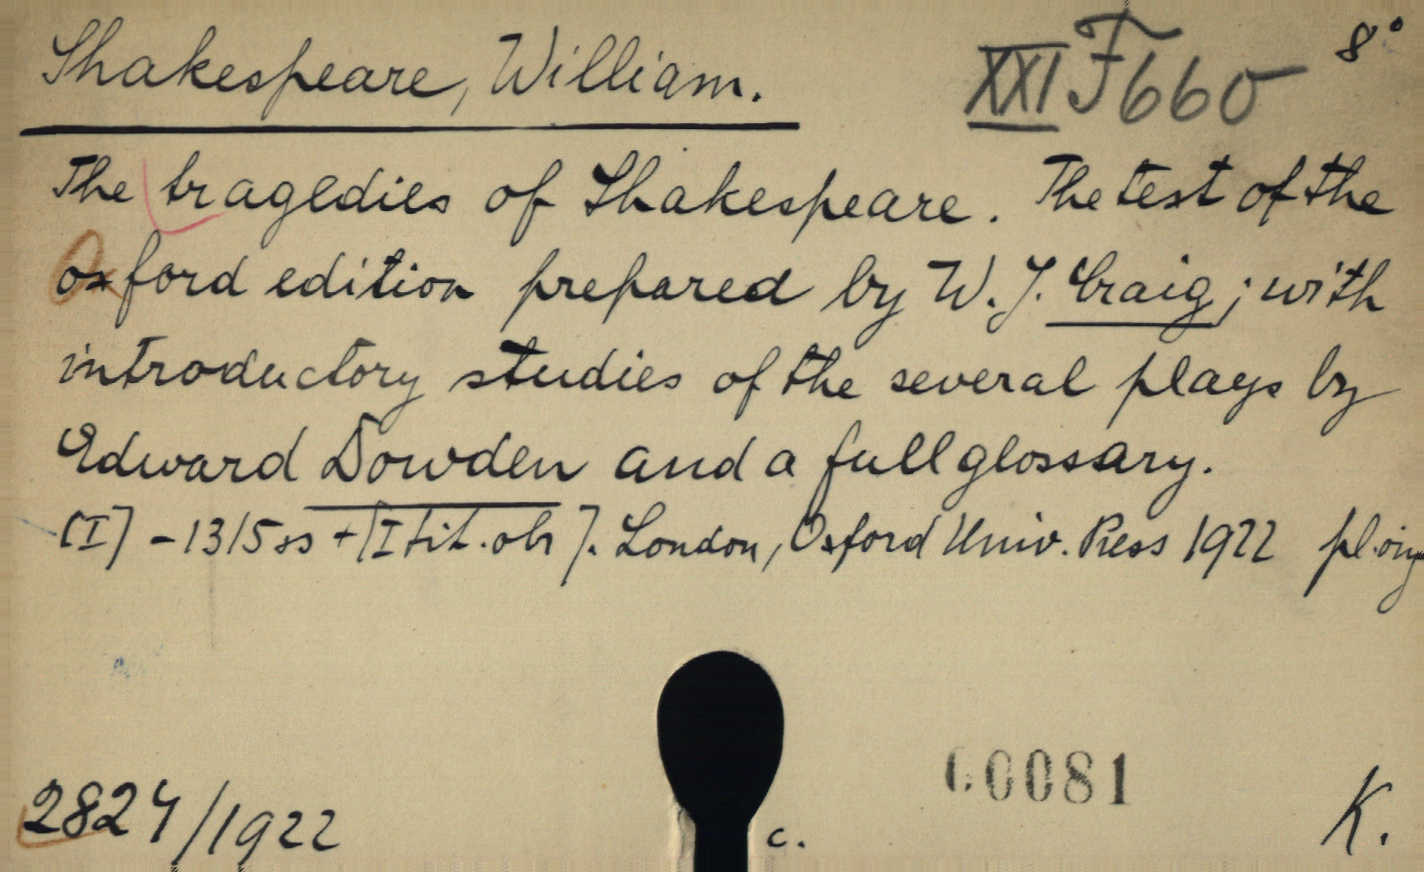 Shakespeare, William. XXI F 660 8°
The tragedies of Shakespeare. The test of the
Oxford edition prepared by W. J. Craig; with
introductory studies of the several plays by
Edward Dowden and a full glossary.
[I] - 1315 ss + [I tit. ob]. London, Oxford Univ. Press 1922 pl. orig
00081
2824/1922 c. K.